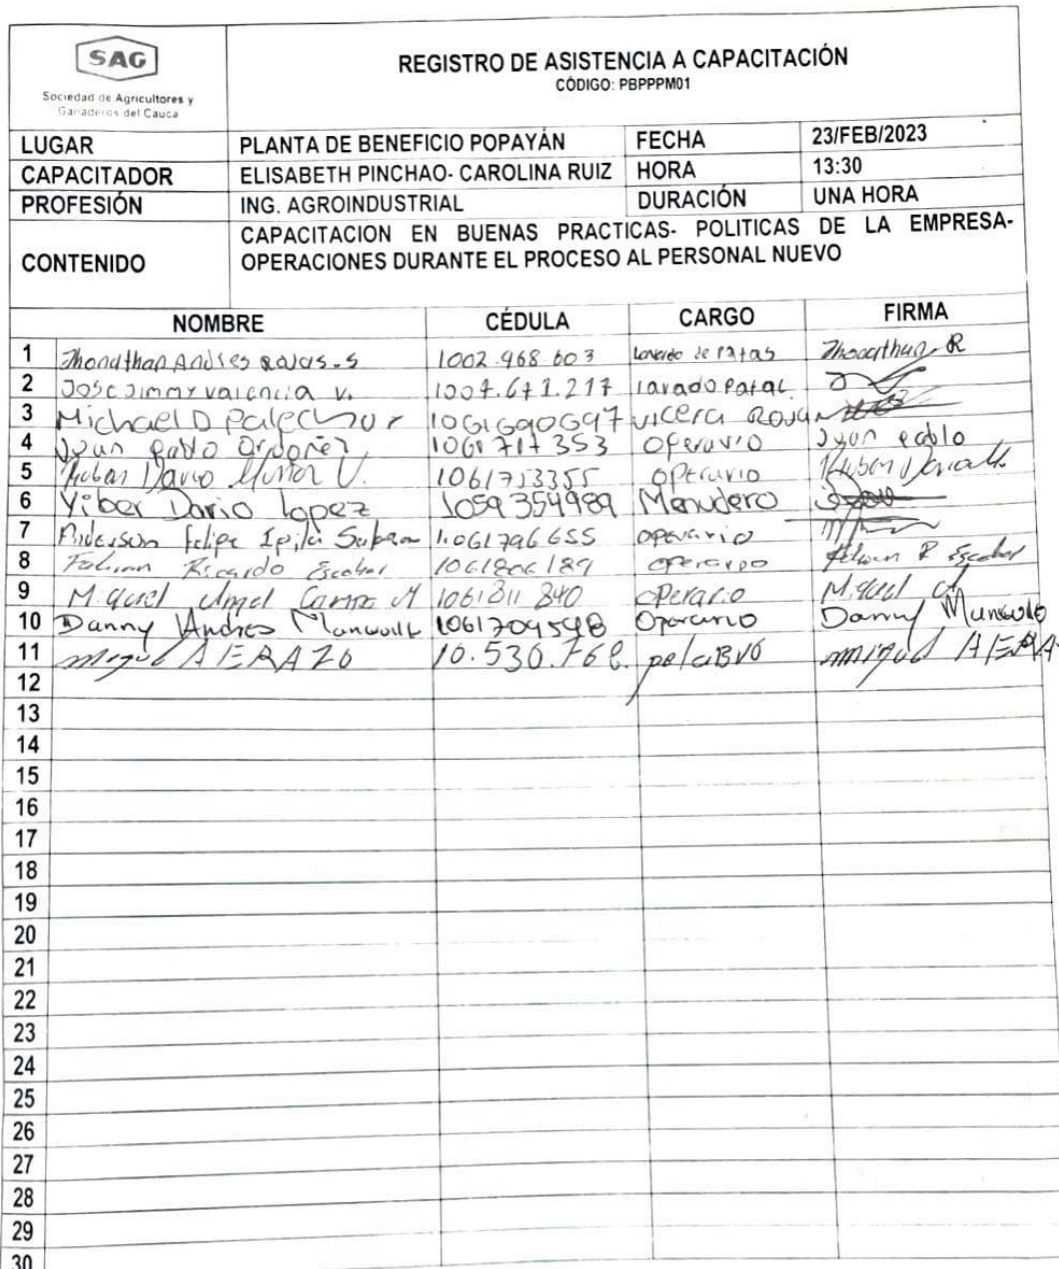 SAG
Sociedad de Agricultores y
Ganaderos del Cauca
REGISTRO DE ASISTENCIA A CAPACITACIÓN
CÓDIGO: PBPPPM01
LUGAR PLANTA DE BENEFICIO POPAYÁN FECHA 23/FEB/2023
CAPACITADOR ELISABETH PINCHAO- CAROLINA RUIZ HORA 13:30
PROFESIÓN ING. AGROINDUSTRIAL DURACIÓN UNA HORA
CONTENIDO CAPACITACION EN BUENAS PRACTICAS- POLITICAS DE LA EMPRESA-
OPERACIONES DURANTE EL PROCESO AL PERSONAL NUEVO
NOMBRE CÉDULA CARGO FIRMA
1 Jhonathan Andres Rojas.s 1002.968.603 de Patas R
2 Jose Jimmy valencia v. 1007.671.217 lavado
3 Michael D Palechor 1061690697 vicera Roja
4 pablo Ordoñez 1061717353 Operario pablo
5 Dario V. 1061753355 operario
6 Yiber Dario lopez 1059354989 Menudero
7 Anderson felipe 1.061796655 operario
8 Ricardo Escobar 1061806189 operario R Escobar
9 Miguel Angel M 1061811840 operario Miguel A
10 Danny Andres 1061709598 Operario Danny
11 miguel A ERAZO 10.530.768. miguel A
12
13
14
15
16
17
18
19
20
21
22
23
24
25
26
27
28
29
30